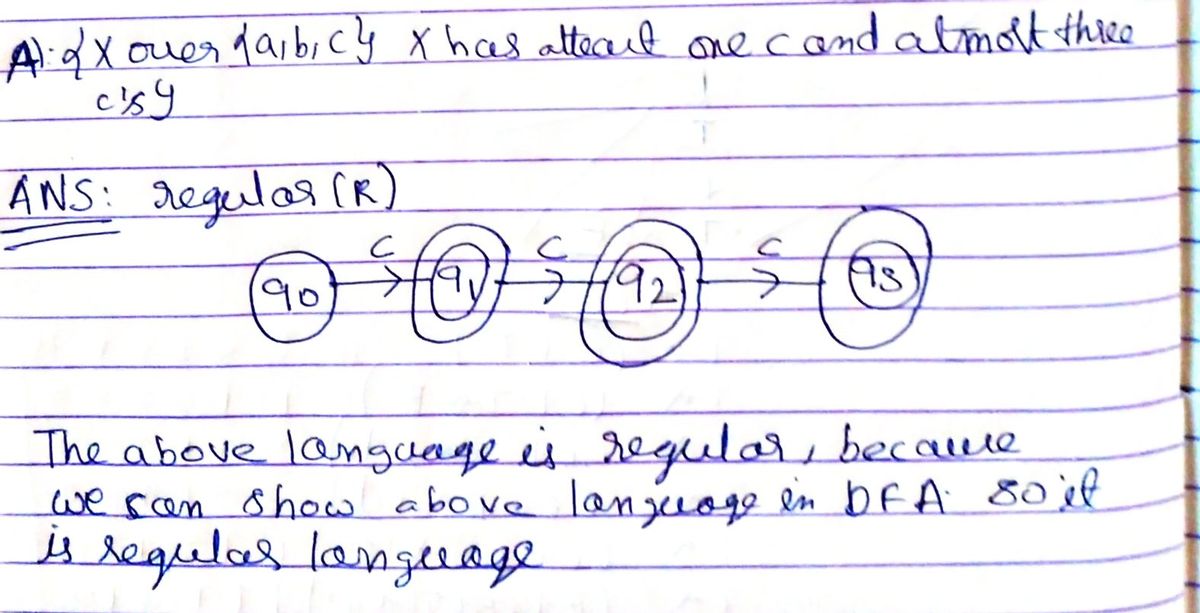 A): {X over {a,b,c} X has atleast one c and atmost three
c's}
ANS: regular (R)
c c c
q0 q1 q2 q3
The above language is regular, because
we can show above language in DFA. so it
is regular language